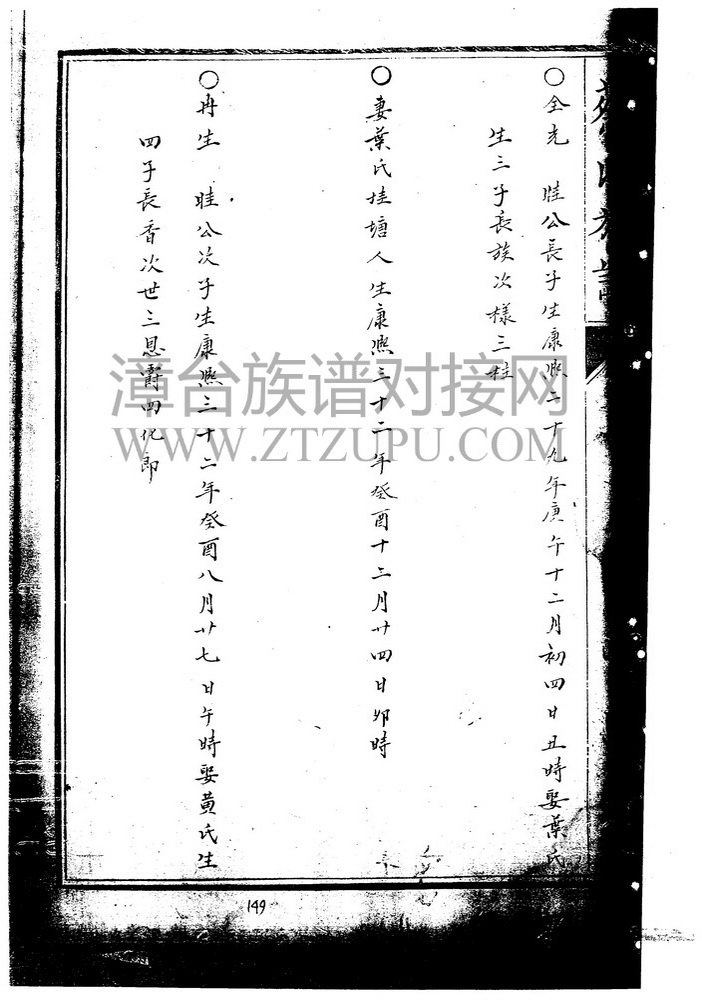 ○全光 眭公長子生康熙二十九年庚午十二月初四日丑時娶葉氏
生三子長族次樣三柱
○妻葉氏埭塘人生康熙三十二年癸酉十二月廿四日卯時
○冉生 眭公次子生康熙三十二年癸酉八月廿七日午時娶黄氏生
四子長香次世三恩爵四化郎
漳台族谱对接网
WWW.ZTZUPU.COM
149